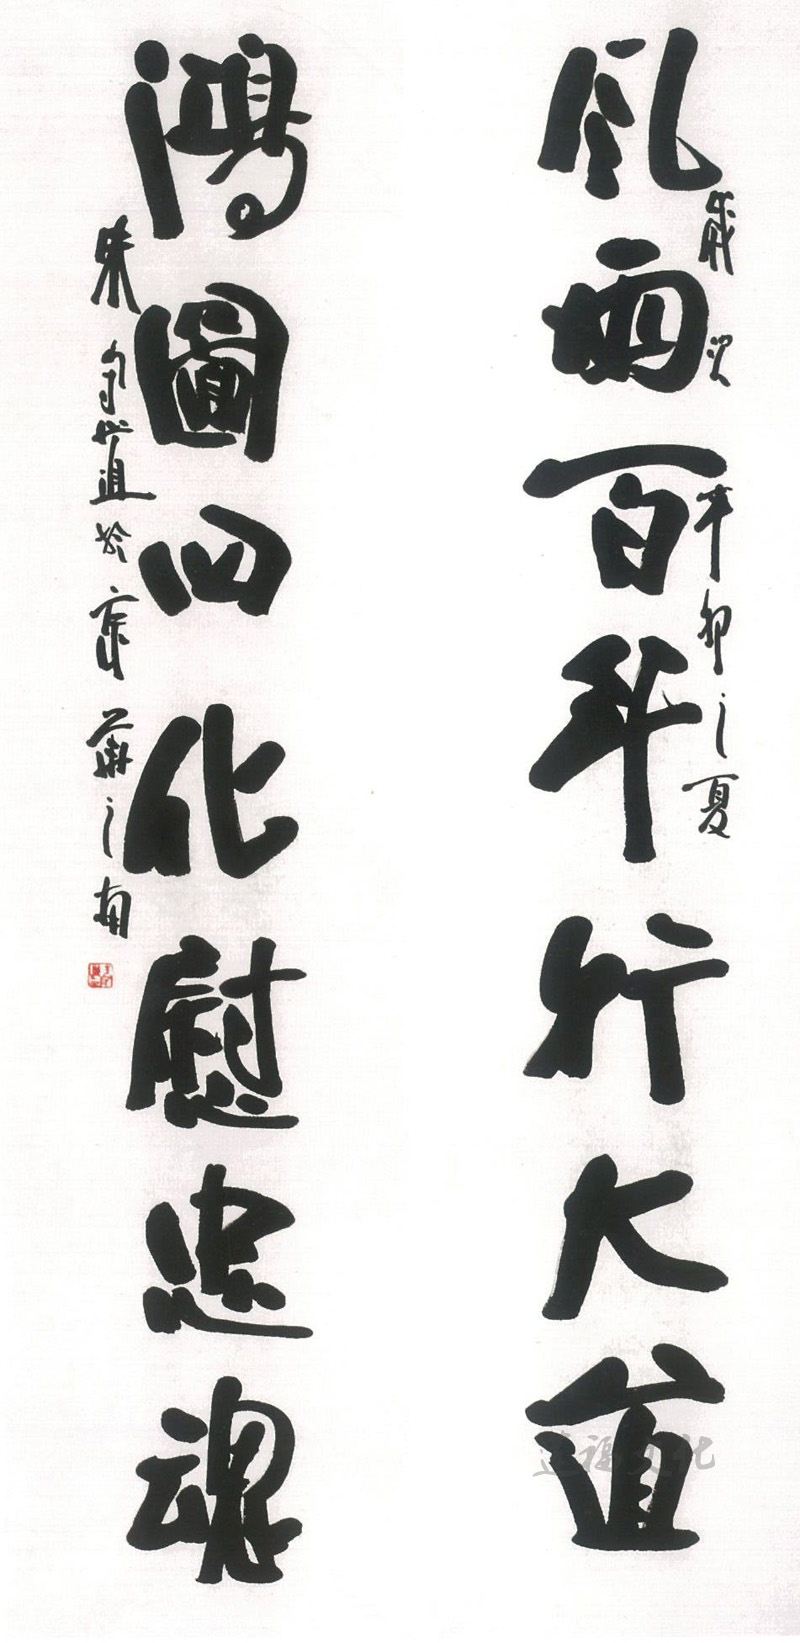 風雨百年行大道
歲次辛卯之夏
鴻圖四化慰忠魂
朱守道於京華之南